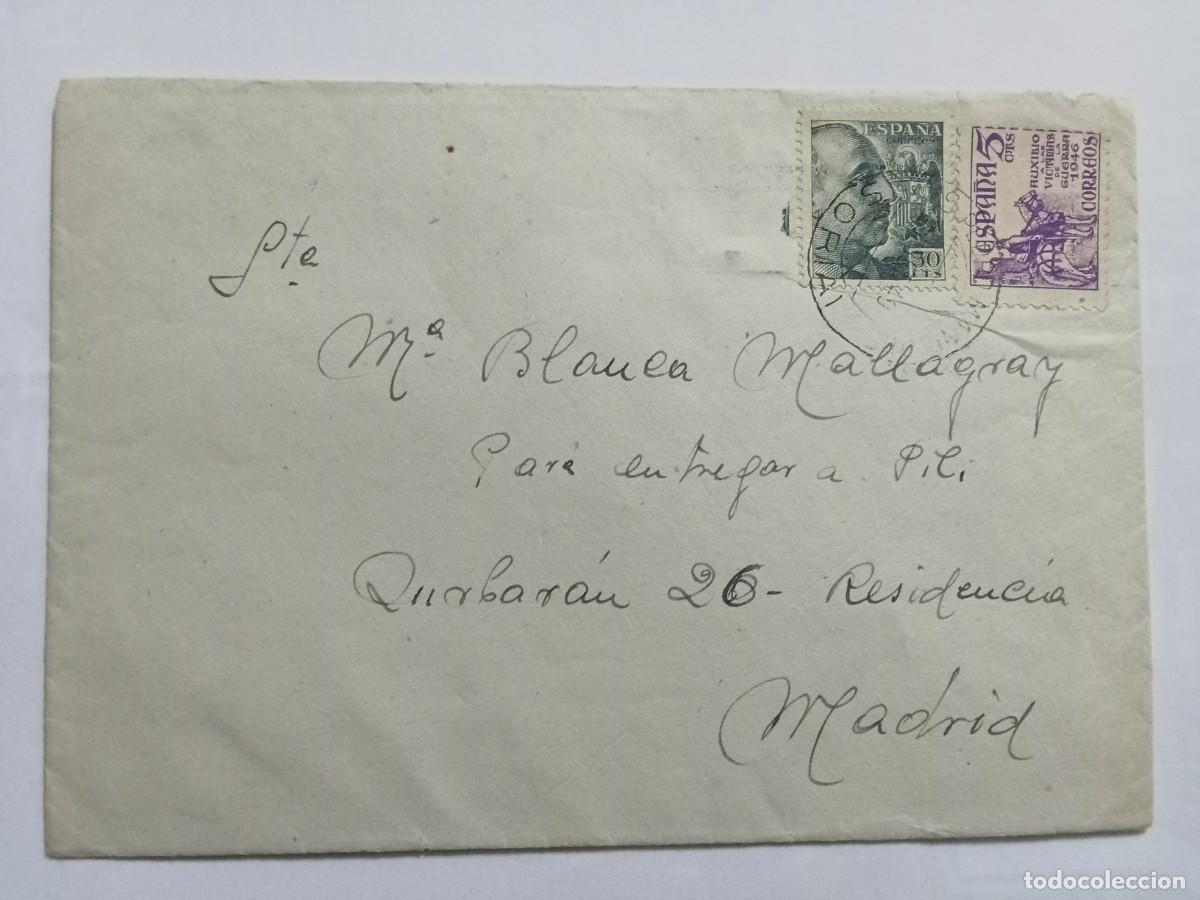 ESPAÑA
CORREOS
50
CTS
ESPAÑA 5 CTS
AUXILIO
A LAS
VICTIMAS
DE LA
GUERRA
1946
CORREOS
Sta
Mª Blanca Mallagray
Para entregar a Pili
Zurbarán 26 - Residencia
Madrid
todocoleccion